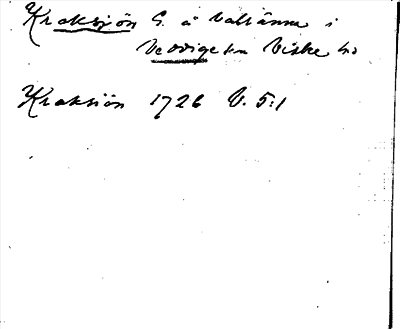 Kraksjön S. å Valtänna i
Veddige sn Viske hd
Kraksiön 1726 V. 5:1